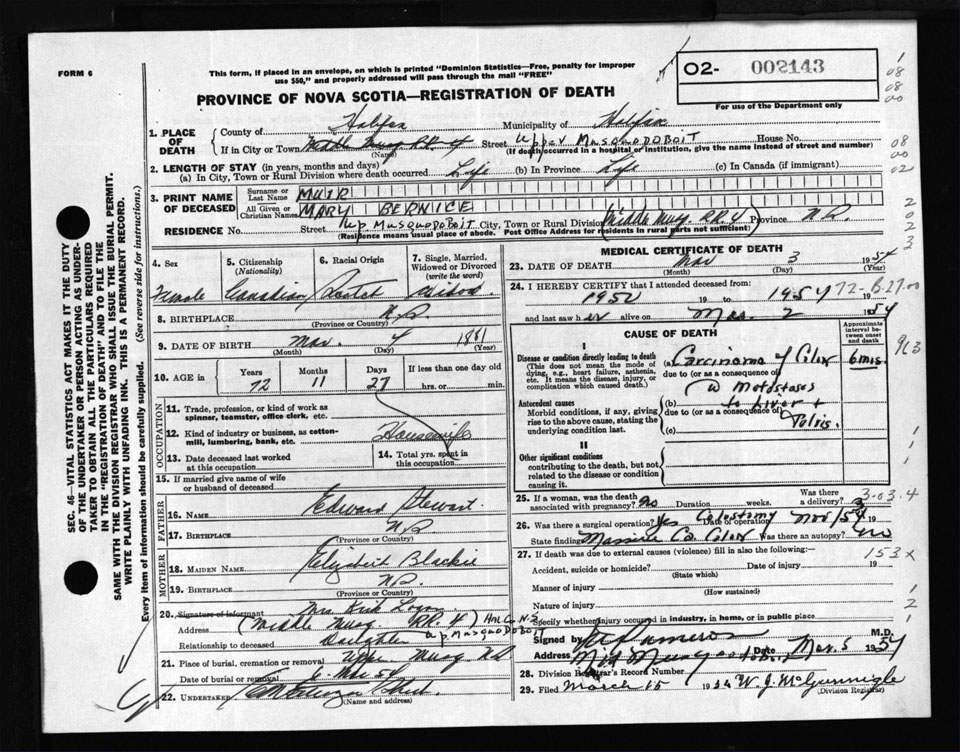 FORM 6
This form, if placed in an envelope, on which is printed "Dominion Statistics—Free, penalty for improper
use $50," and properly addressed will pass through the mail "FREE"
O2- 002143
For use of the Department only
PROVINCE OF NOVA SCOTIA—REGISTRATION OF DEATH
1. PLACE OF DEATH { County of Halifax Municipality of Halifax
If in City or Town Middle Musq RR 4 Street Upper MUSQUODOBOIT House No.
(Name) (If death occurred in a hospital or institution, give the name instead of street and number)
2. LENGTH OF STAY (in years, months and days)
(a) In City, Town or Rural Division where death occurred Life (b) In Province Life (c) In Canada (if immigrant)
3. PRINT NAME OF DECEASED { Surname or Last Name MUIR
All Given or Christian Names MARY BERNICE
RESIDENCE No. Street Up MUSQUODOBOIT City, Town or Rural Division (Middle Musq. RR. 4) Province N.S.
(Residence means usual place of abode. Post Office Address for residents in rural parts not sufficient)
4. Sex Female
5. Citizenship (Nationality) Canadian
6. Racial Origin Scotch
7. Single, Married, Widowed or Divorced (write the word) Widow
8. BIRTHPLACE N.S.
(Province or Country)
9. DATE OF BIRTH Mar. 4 1881
(Month) (Day) (Year)
10. AGE in Years 72 Months 11 Days 27 If less than one day old hrs. or min.
OCCUPATION
11. Trade, profession, or kind of work as spinner, teamster, office clerk, etc.
12. Kind of industry or business, as cotton-mill, lumbering, bank, etc. Housewife
13. Date deceased last worked at this occupation
14. Total yrs. spent in this occupation
15. If married give name of wife or husband of deceased
FATHER
16. NAME Edward Stewart
17. BIRTHPLACE N.S.
(Province or Country)
MOTHER
18. MAIDEN NAME Elizabeth Blackie
19. BIRTHPLACE N.S.
(Province or Country)
20. Signature of informant Mrs Kirk Logan
Address (Middle Musq. RR. 4) Hfx. Co. N.S. Up MUSQUODOBOIT
Relationship to deceased Daughter
21. Place of burial, cremation or removal Upper Musq NS
Date of burial or removal 6 Mar 54
22. UNDERTAKER
(Name and address)
MEDICAL CERTIFICATE OF DEATH
23. DATE OF DEATH Mar 3 1954
(Month) (Day) (Year)
24. I HEREBY CERTIFY that I attended deceased from:
1952 19 to 1954 72-B-27.00
and last saw her alive on Mar. 2 1954
CAUSE OF DEATH
Approximate interval between onset and death
I
Disease or condition directly leading to death
(This does not mean the mode of dying, e.g., heart failure, asthenia, etc. It means the disease, injury, or complication which caused death.)
(a) Carcinoma of Colon 6 mos.
due to (or as a consequence of)
w Metastases
Antecedent causes
Morbid conditions, if any, giving rise to the above cause, stating the underlying condition last.
(b) to Liver +
due to (or as a consequence of) Pelvis.
(c)
II
Other significant conditions
contributing to the death, but not related to the disease or condition causing it.
25. If a woman, was the death associated with pregnancy? No Duration weeks. Was there a delivery? 3-03.4
26. Was there a surgical operation? Yes Colostomy Date of operation Nov/54 19
State findings Massive Ca. Colon Was there an autopsy? No
27. If death was due to external causes (violence) fill in also the following: 153x
Accident, suicide or homicide? Date of injury 19
(State which)
Manner of injury
(How sustained)
Nature of injury
Specify whether injury occurred in industry, in home, or in public place
Signed by M.D.
Address Mid Musquodoboit Date Mar. 5 1954
28. Division Registrar's Record Number
29. Filed March 15 1954 W. J. McGunnigle
(Division Registrar)
SEC. 46—VITAL STATISTICS ACT MAKES IT THE DUTY
OF THE UNDERTAKER OR PERSON ACTING AS UNDER-
TAKER TO OBTAIN ALL THE PARTICULARS REQUIRED
IN THE "REGISTRATION OF DEATH" AND TO FILE THE
SAME WITH THE DIVISION REGISTRAR WHO SHALL ISSUE THE BURIAL PERMIT.
WRITE PLAINLY WITH UNFADING INK. THIS IS A PERMANENT RECORD.
Every item of information should be carefully supplied. (See reverse side for instructions.)